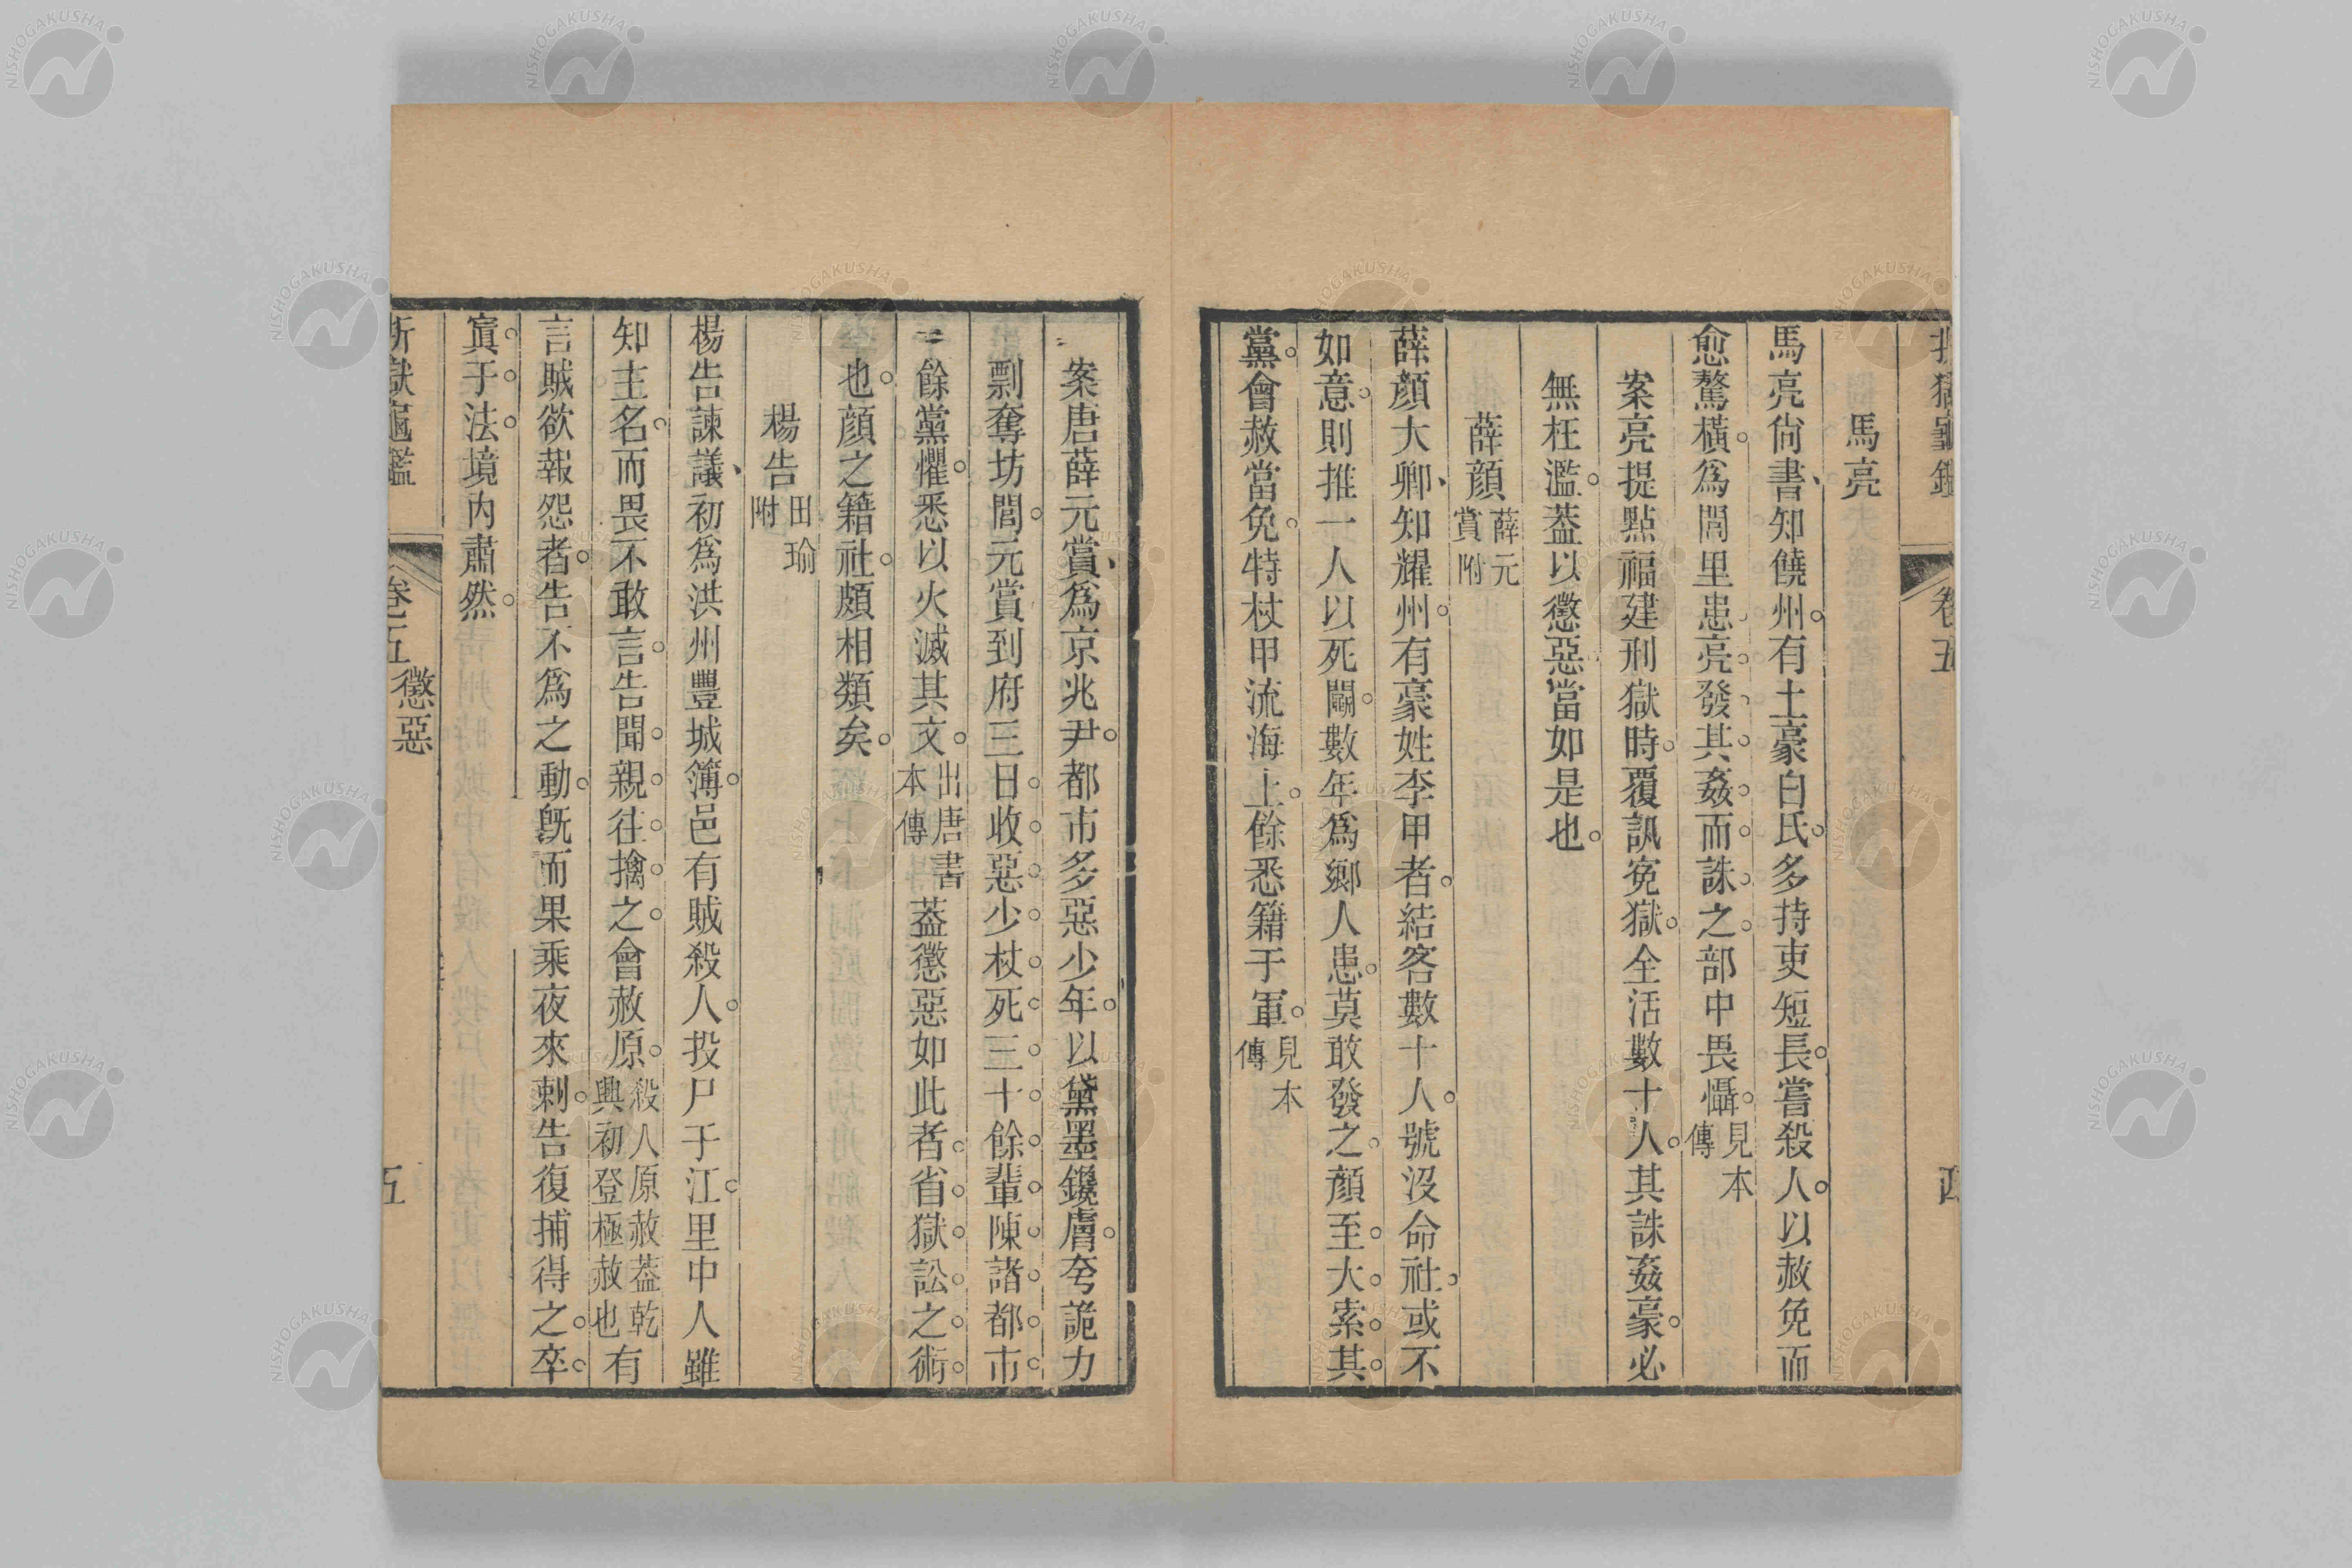 馬亮
馬亮尙書、知饒州。有土豪白氏。多持吏短長。嘗殺人。以赦免而
愈驁橫。爲閭里患。亮。發。其。姦。而。誅。之。部中畏懾。見本傳
案亮提點福建刑獄時。覆訊寃獄。全活數十人。其誅姦豪。必
無枉濫。葢以懲惡當如是也。
薛顏 薛元賞附
薛顏大卿、知耀州。有豪姓李甲者。結客數十人。號沒命社。或不
如意。則推一人以死鬭。數年爲鄉人患。莫敢發之。顏至。大。索。其。
黨。會赦當免。特杖甲流海上。餘悉籍于軍。見本傳
卷五
案唐薛元賞、爲京兆尹。都市多惡少年。以黛墨鑱膚。夸詭力
剽奪坊閭。元賞到府三日。收。惡。少。杖。死。三。十。餘。輩。陳。諸。都。市。
餘黨懼。悉以火滅其文。出唐書本傳 葢懲惡如此者。省。獄。訟。之。術。
也。顏之籍社。頗相類矣。
楊告 田瑜附
楊告諫議、初爲洪州豐城簿。邑有賊殺人。投尸于江。里中人雖
知主名。而畏不敢言。告聞。親。往。擒。之。會赦原。殺人原赦葢乾興初登極赦也 有
言賊欲報怨者。告不爲之動。旣而果乘夜來刺。告復捕得之。卒。
寘。于。法。境內肅然。
斷獄龜鑑 卷五 懲惡 五